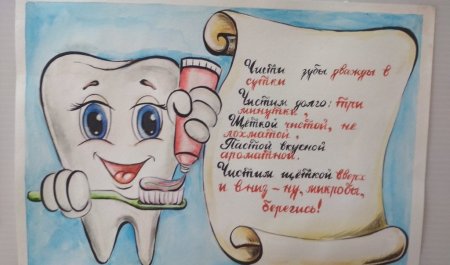 Чисти зубы дважды в
сутки
Чистим долго: три
минутки,
Щёткой чистой, не
лохматой,
Пастой вкусной
ароматной.
Чистим щёткой вверх
и вниз – ну, микробы,
берегись!